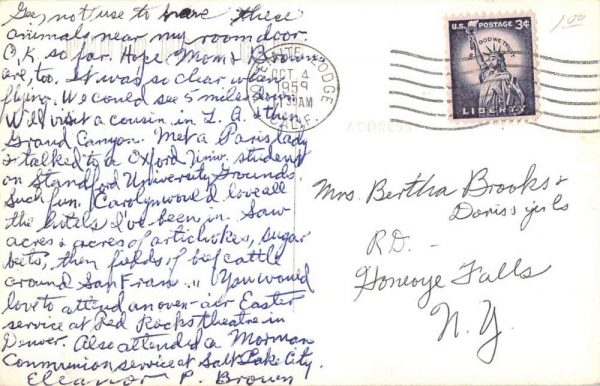 Gee, not use to have these
animals near my room door.
O.K. so far. Hope Mom & Brown
are, too. It was so clear when
flying. We could see 5 miles down.
We'll visit a cousin in L.A. & then
Grand Canyon. Met a Paris lady
& talked to a Oxford Univ. student
on Standford University Grounds.
Such fun. Carolyn would love all
the hotels I've been in. Saw
acres & acres of artichokes, sugar
beets, then fields of beef cattle
around San Fran... You would
love to attend an over-air Easter
service at Red Rocks theatre in
Denver. Also attended a Morman
Communion service at Salt Lake City.
Eleanor P. Brown
LODGE
OCT 4
1959
AM
CALIF.
U.S. POSTAGE 3¢
IN GOD WE TRUST
LIBERTY
1.00
ADDRESS
Mrs. Bertha Brooks &
Doris's girls
RD. -
Honeoye Falls
N.Y.